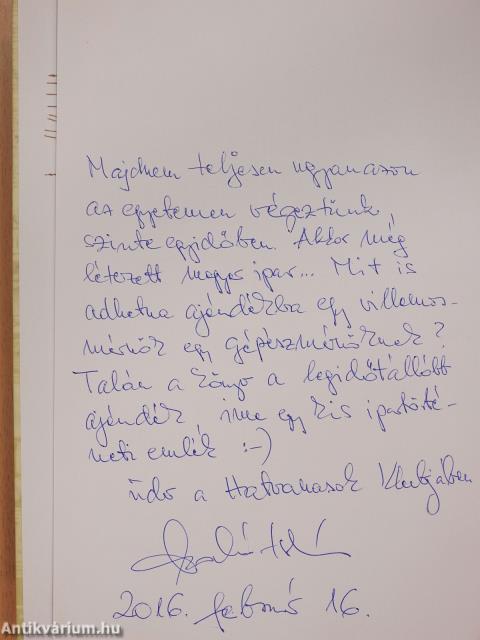 Majdnem teljesen ugyanazon
az egyetemen végeztünk,
szinte egyidőben. Akkor még
létezett magyar ipar... Mit is
adhatna ajándékba egy villamos-
mérnök egy gépészmérnöknek?
Talán a könyv a legidőtállóbb
ajándék, íme egy kis ipartörté-
neti emlék :-)
üdv a Hatvanasok Klubjában
2016. február 16.
Antikvárium.hu